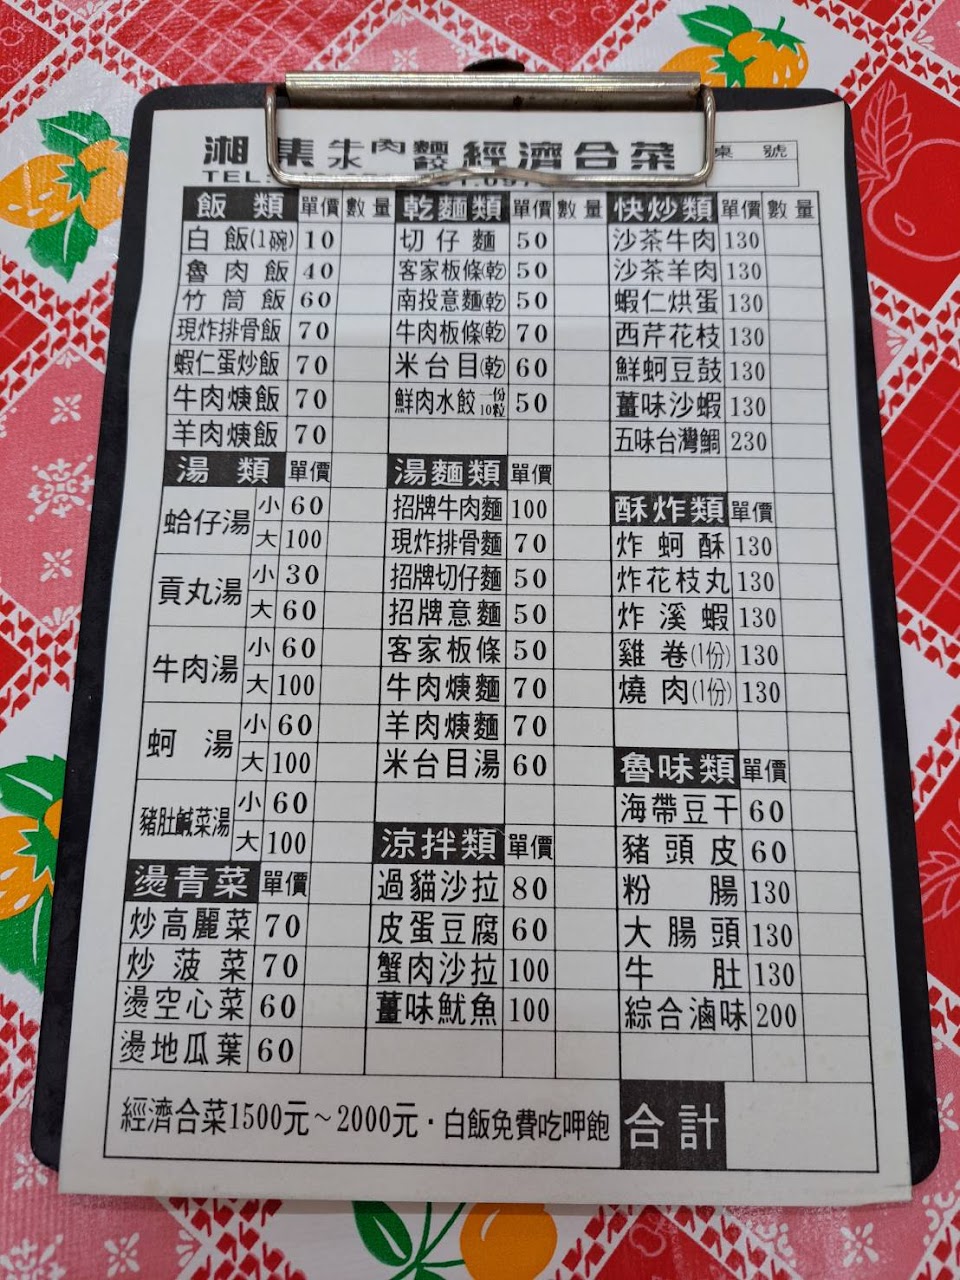 湘集牛肉麵水餃經濟合菜 桌號
TEL:
飯類 單價 數量
白飯(1碗) 10
魯肉飯 40
竹筒飯 60
現炸排骨飯 70
蝦仁蛋炒飯 70
牛肉焿飯 70
羊肉焿飯 70
湯類 單價
蛤仔湯 小 60
大 100
貢丸湯 小 30
大 60
牛肉湯 小 60
大 100
蚵湯 小 60
大 100
豬肚鹹菜湯 小 60
大 100
燙青菜 單價
炒高麗菜 70
炒菠菜 70
燙空心菜 60
燙地瓜葉 60
乾麵類 單價 數量
切仔麵 50
客家板條(乾) 50
南投意麵(乾) 50
牛肉板條(乾) 70
米台目(乾) 60
鮮肉水餃 一份10粒 50
湯麵類 單價
招牌牛肉麵 100
現炸排骨麵 70
招牌切仔麵 50
招牌意麵 50
客家板條 50
牛肉焿麵 70
羊肉焿麵 70
米台目湯 60
涼拌類 單價
過貓沙拉 80
皮蛋豆腐 60
蟹肉沙拉 100
薑味魷魚 100
快炒類 單價 數量
沙茶牛肉 130
沙茶羊肉 130
蝦仁烘蛋 130
西芹花枝 130
鮮蚵豆鼓 130
薑味沙蝦 130
五味台灣鯛 230
酥炸類 單價
炸蚵酥 130
炸花枝丸 130
炸溪蝦 130
雞卷(1份) 130
燒肉(1份) 130
魯味類 單價
海帶豆干 60
豬頭皮 60
粉腸 130
大腸頭 130
牛肚 130
綜合滷味 200
經濟合菜1500元～2000元·白飯免費吃呷飽 合計